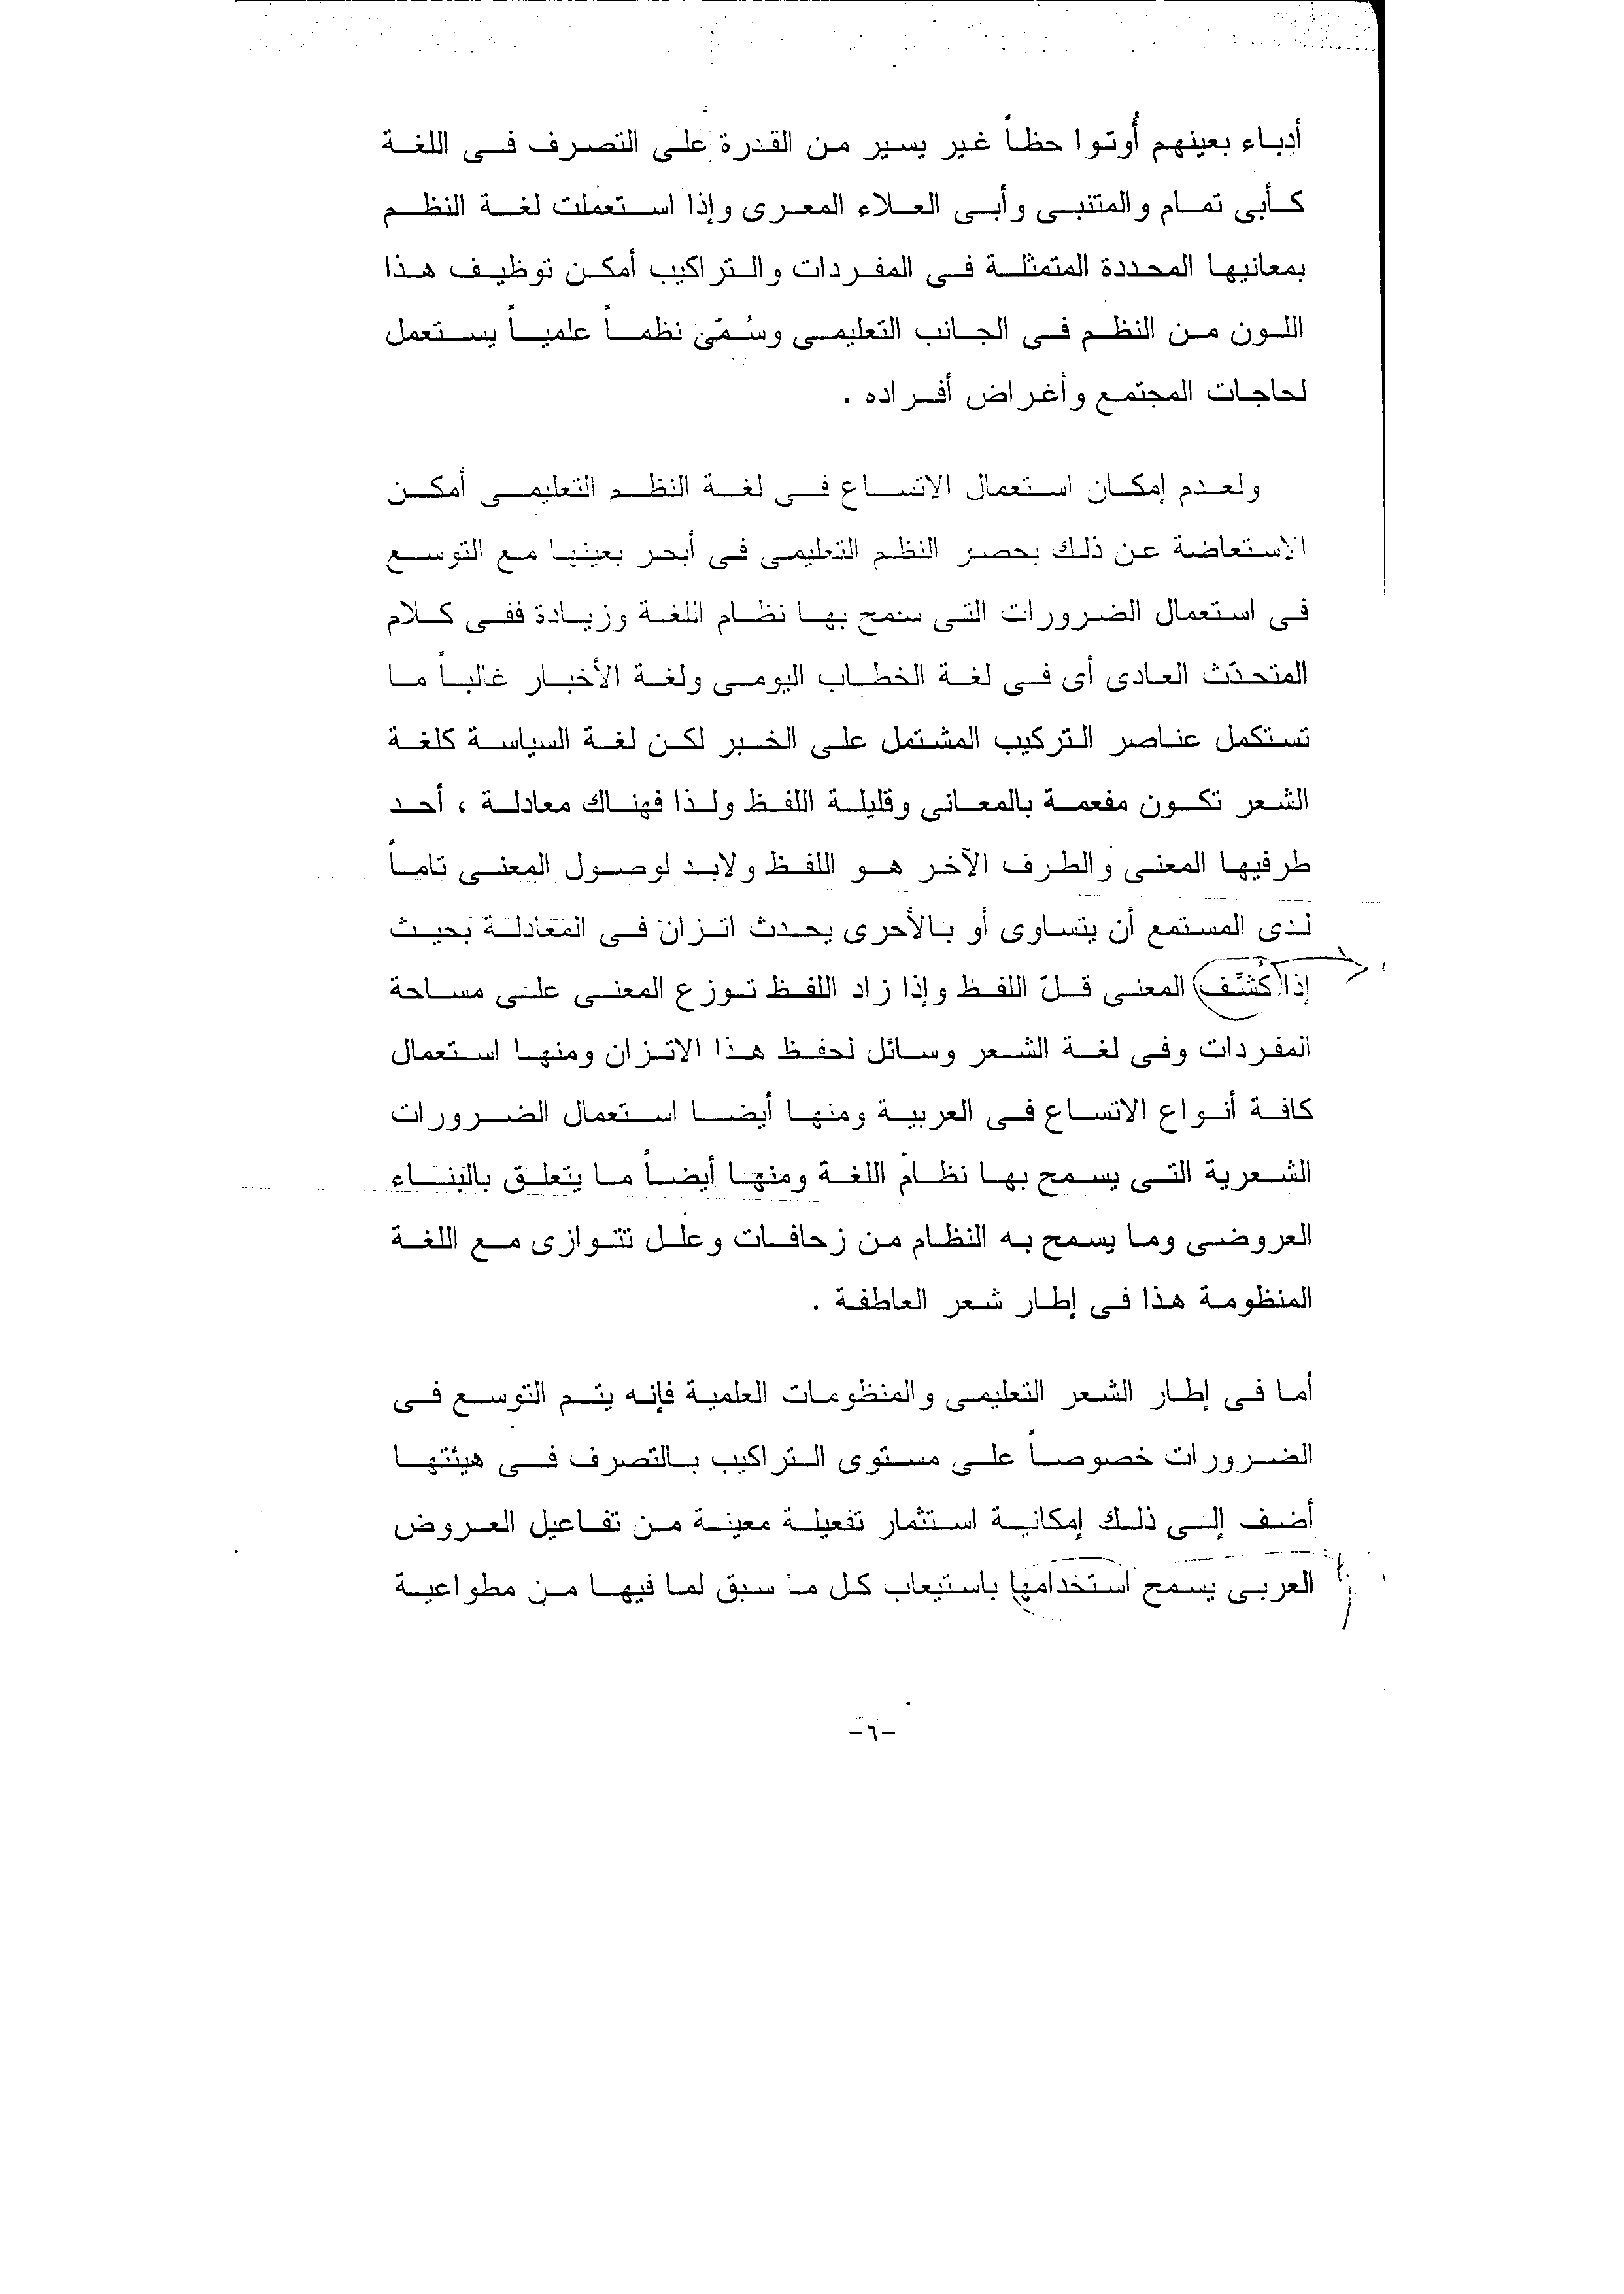 أدباء بعينهم أُوتوا حظاً غير يسير من القدرة على التصرف فى اللغة
كأبى تمام والمتنبى وأبى العلاء المعرى وإذا استعملت لغة النظم
بمعانيها المحددة المتمثلة فى المفردات والتراكيب أمكن توظيف هذا
اللون من النظم فى الجانب التعليمى وسُمّى نظماً علمياً يستعمل
لحاجات المجتمع وأغراض أفراده .
ولعدم إمكان استعمال الاتساع فى لغة النظم التعليمى أمكن
الاستعاضة عن ذلك بحصر النظم التعليمى فى أبحر بعينها مع التوسع
فى استعمال الضرورات التى سمح بها نظام اللغة وزيادة ففى كلام
المتحدّث العادى أى فى لغة الخطاب اليومى ولغة الأخبار غالباً ما
تستكمل عناصر التركيب المشتمل على الخبر لكن لغة السياسة كلغة
الشعر تكون مفعمة بالمعانى وقليلة اللفظ ولذا فهناك معادلة ، أحد
طرفيها المعنى والطرف الآخر هو اللفظ ولابد لوصول المعنى تاماً
لدى المستمع أن يتساوى أو بالأحرى يحدث اتزان فى المعادلة بحيث
إذا كُثِّف المعنى قلّ اللفظ وإذا زاد اللفظ توزع المعنى على مساحة
المفردات وفى لغة الشعر وسائل لحفظ هذا الاتزان ومنها استعمال
كافة أنواع الاتساع فى العربية ومنها أيضا استعمال الضرورات
الشعرية التى يسمح بها نظام اللغة ومنها أيضاً ما يتعلق بالبناء
العروضى وما يسمح به النظام من زحافات وعلل تتوازى مع اللغة
المنظومة هذا فى إطار شعر العاطفة .
أما فى إطار الشعر التعليمى والمنظومات العلمية فإنه يتم التوسع فى
الضرورات خصوصاً على مستوى التراكيب بالتصرف فى هيئتها
أضف إلى ذلك إمكانية استثمار تفعيلة معينة من تفاعيل العروض
العربى يسمح استخدامها باستيعاب كل ما سبق لما فيها من مطواعية
-٦-